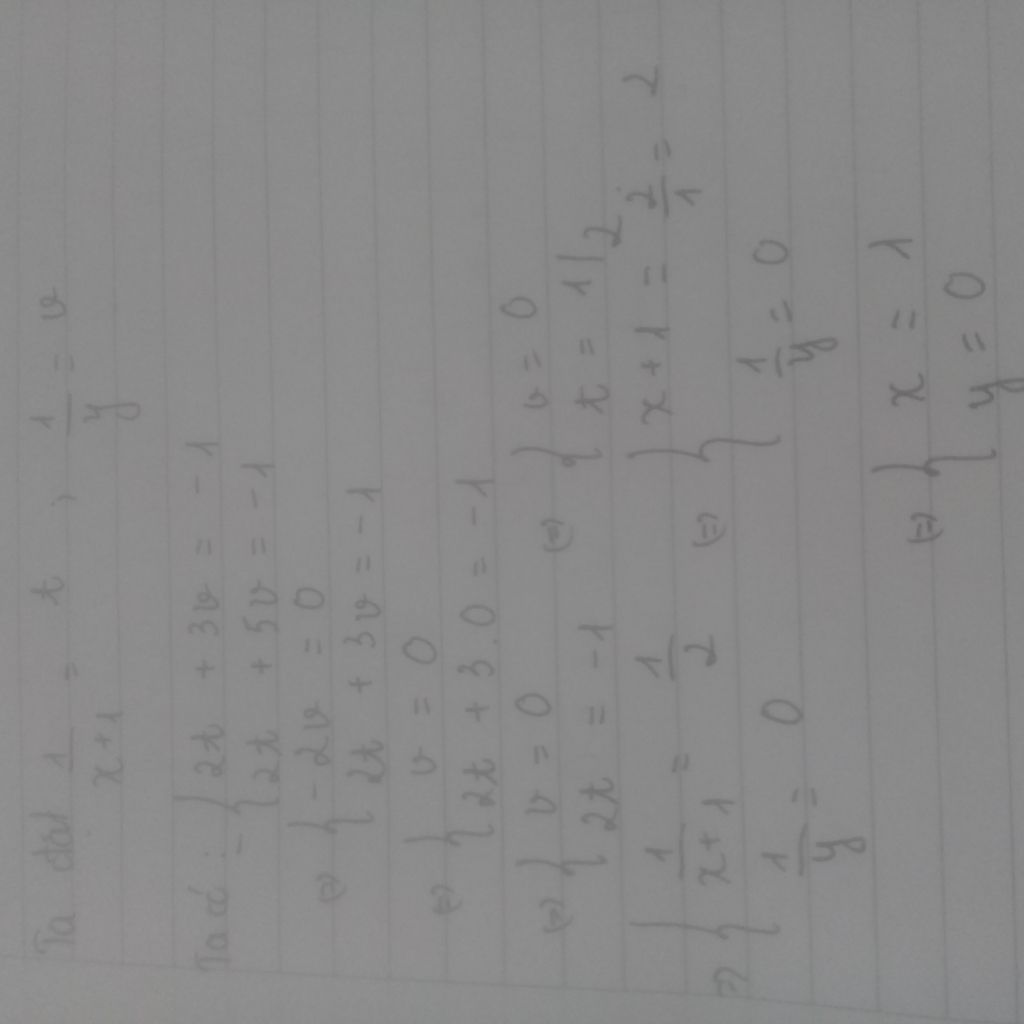 Ta đặt 1/(x+1) = t , 1/y = v
Ta có : { 2t + 3v = -1
- { 2t + 5v = -1
(=) { -2v = 0
{ 2t + 3v = -1
(=) { v = 0
{ 2t + 3.0 = -1
(=) { v = 0 (=) { v = 0
{ 2t = -1 { t = 1/2
(=) { 1/(x+1) = 1/2 (=) { x + 1 = 2/1 = 2
{ 1/y = 0 { 1/y = 0
(=) { x = 1
{ y = 0